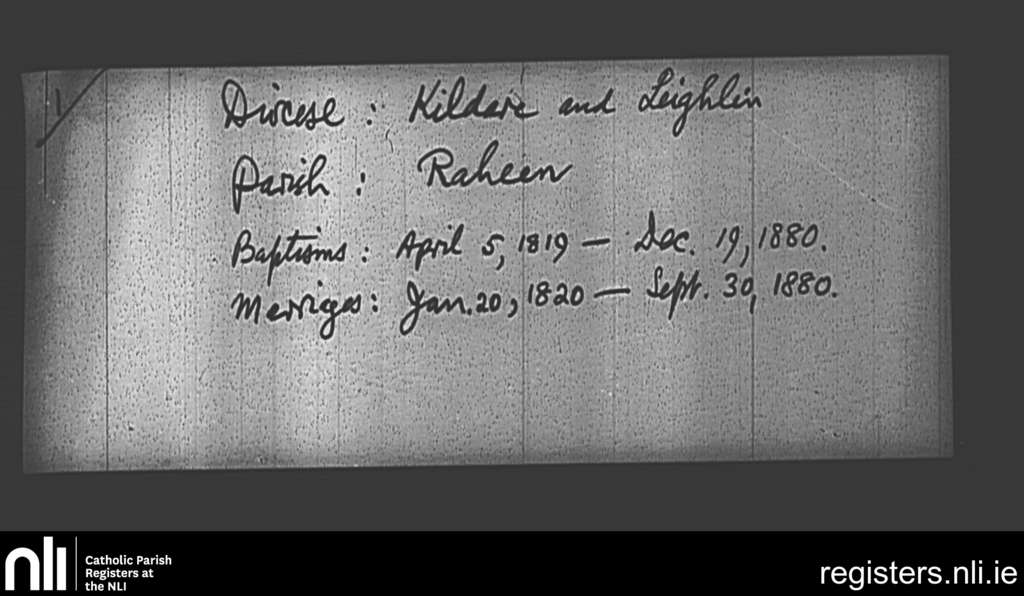 Diocese : Kildare and Leighlin
Parish : Raheen
Baptisms : April 5, 1819 – Dec. 19, 1880.
Merriges : Jan. 20, 1820 – Sept. 30, 1880.
nli
Catholic Parish
Registers at
the NLI
registers.nli.ie